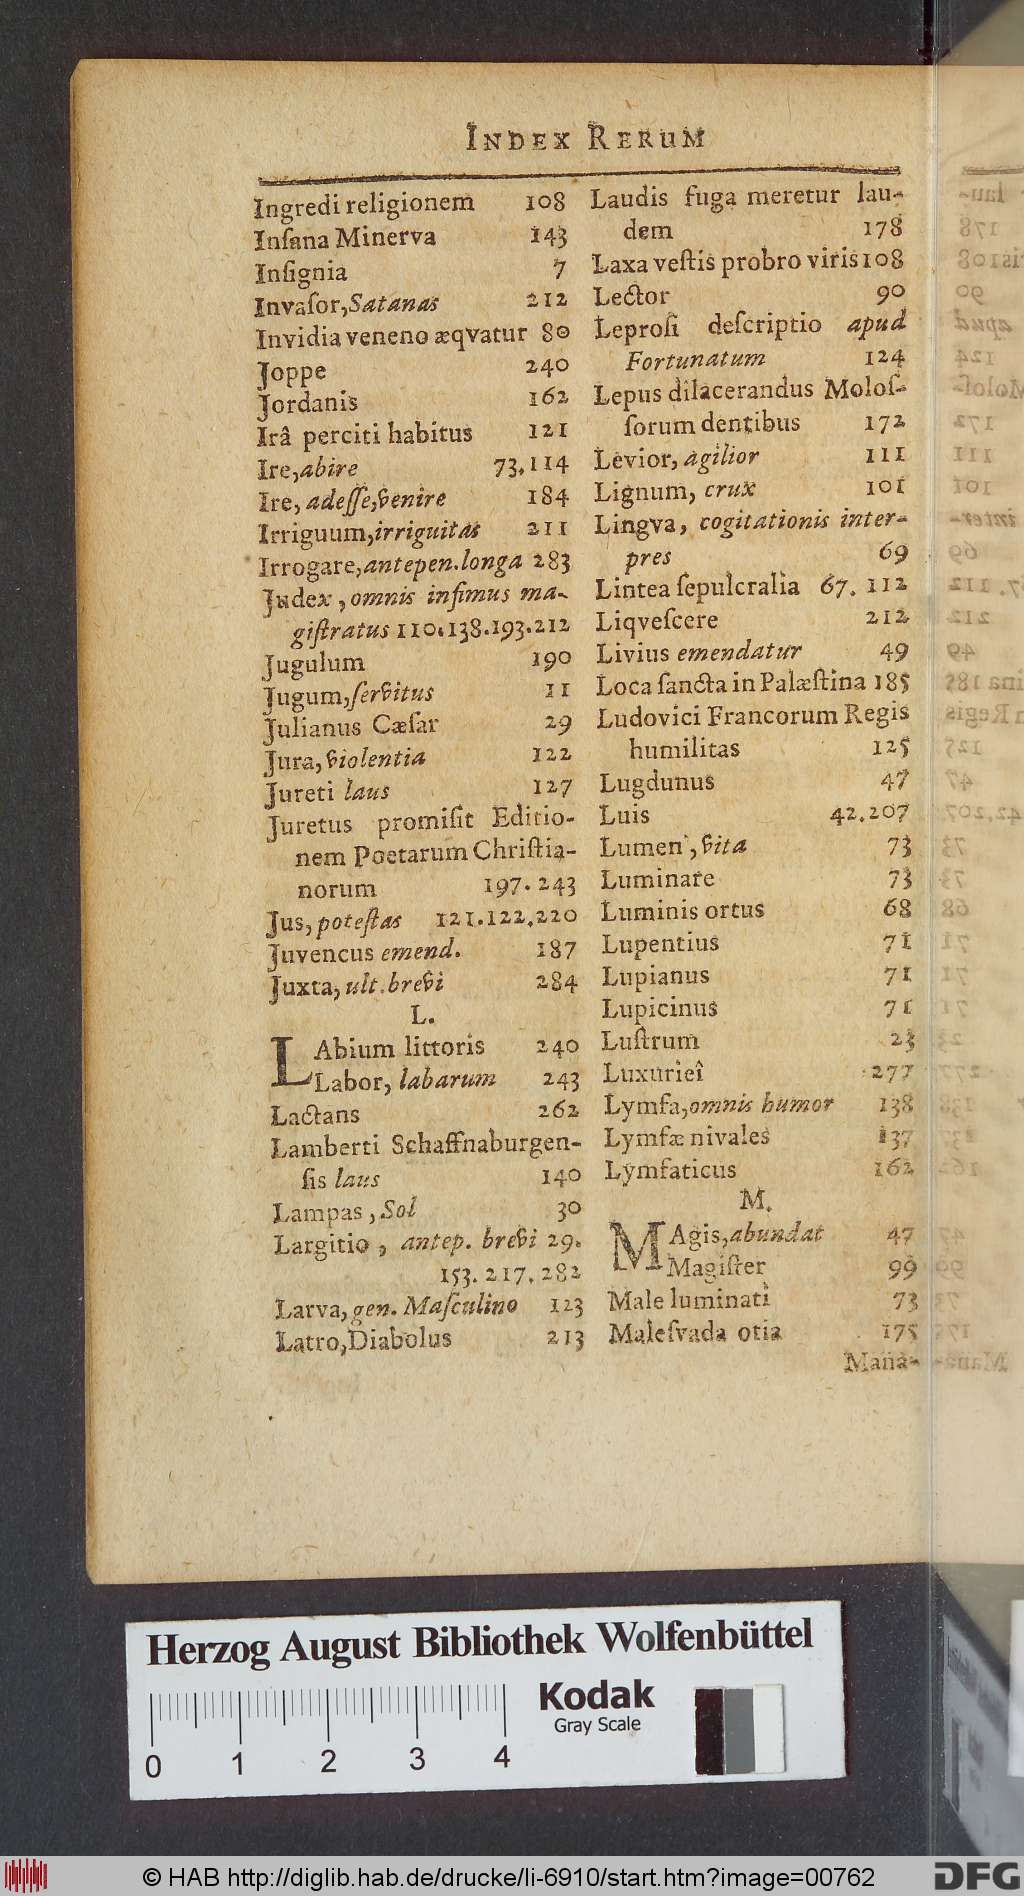 INDEX RERUM
Ingredi religionem 108
Inſana Minerva 143
Inſignia 7
Invaſor, Satanas 212
Invidia veneno æqvatur 80
Joppe 240
Jordanis 162
Irâ perciti habitus 121
Ire, abire 73.114
Ire, adeſſe, venire 184
Irriguum, irriguitas 211
Irrogare, antepen. longa 283
Judex, omnis infimus ma-
giſtratus 110.138.193.212
Jugulum 190
Jugum, ſervitus 11
Julianus Cæſar 29
Jura, violentia 122
Jureti laus 127
Juretus promiſit Editio-
nem Poetarum Chriſtia-
norum 197.243
Jus, poteſtas 121.122.220
Juvencus emend. 187
Juxta, ult. brevi 284
L.
LAbium littoris 240
Labor, labarum 243
Lactans 262
Lamberti Schaffnaburgen-
ſis laus 140
Lampas, Sol 30
Largitio, antep. brevi 29.
153.217.282
Larva, gen. Maſculino 123
Latro, Diabolus 213
Laudis fuga meretur lau-
dem 178
Laxa veſtis probro viris 108
Lector 90
Leproſi deſcriptio apud
Fortunatum 124
Lepus dilacerandus Moloſ-
ſorum dentibus 172
Levior, agilior 111
Lignum, crux 101
Lingva, cogitationis inter-
pres 69
Lintea ſepulcralia 67.112
Liqveſcere 212
Livius emendatur 49
Loca ſancta in Palæſtina 185
Ludovici Francorum Regis
humilitas 125
Lugdunus 47
Luis 42.207
Lumen, vita 73
Luminare 73
Luminis ortus 68
Lupentius 71
Lupianus 71
Lupicinus 71
Luſtrum 23
Luxuriei 277
Lymfa, omnis humor 138
Lymfæ nivales 137
Lymfaticus 162
M.
MAgis, abundat 47
Magiſter 99
Male luminati 73
Maleſvada otia 175
Mana-
Herzog August Bibliothek Wolfenbüttel
Kodak
Gray Scale
0 1 2 3 4
© HAB http://diglib.hab.de/drucke/li-6910/start.htm?image=00762
DFG